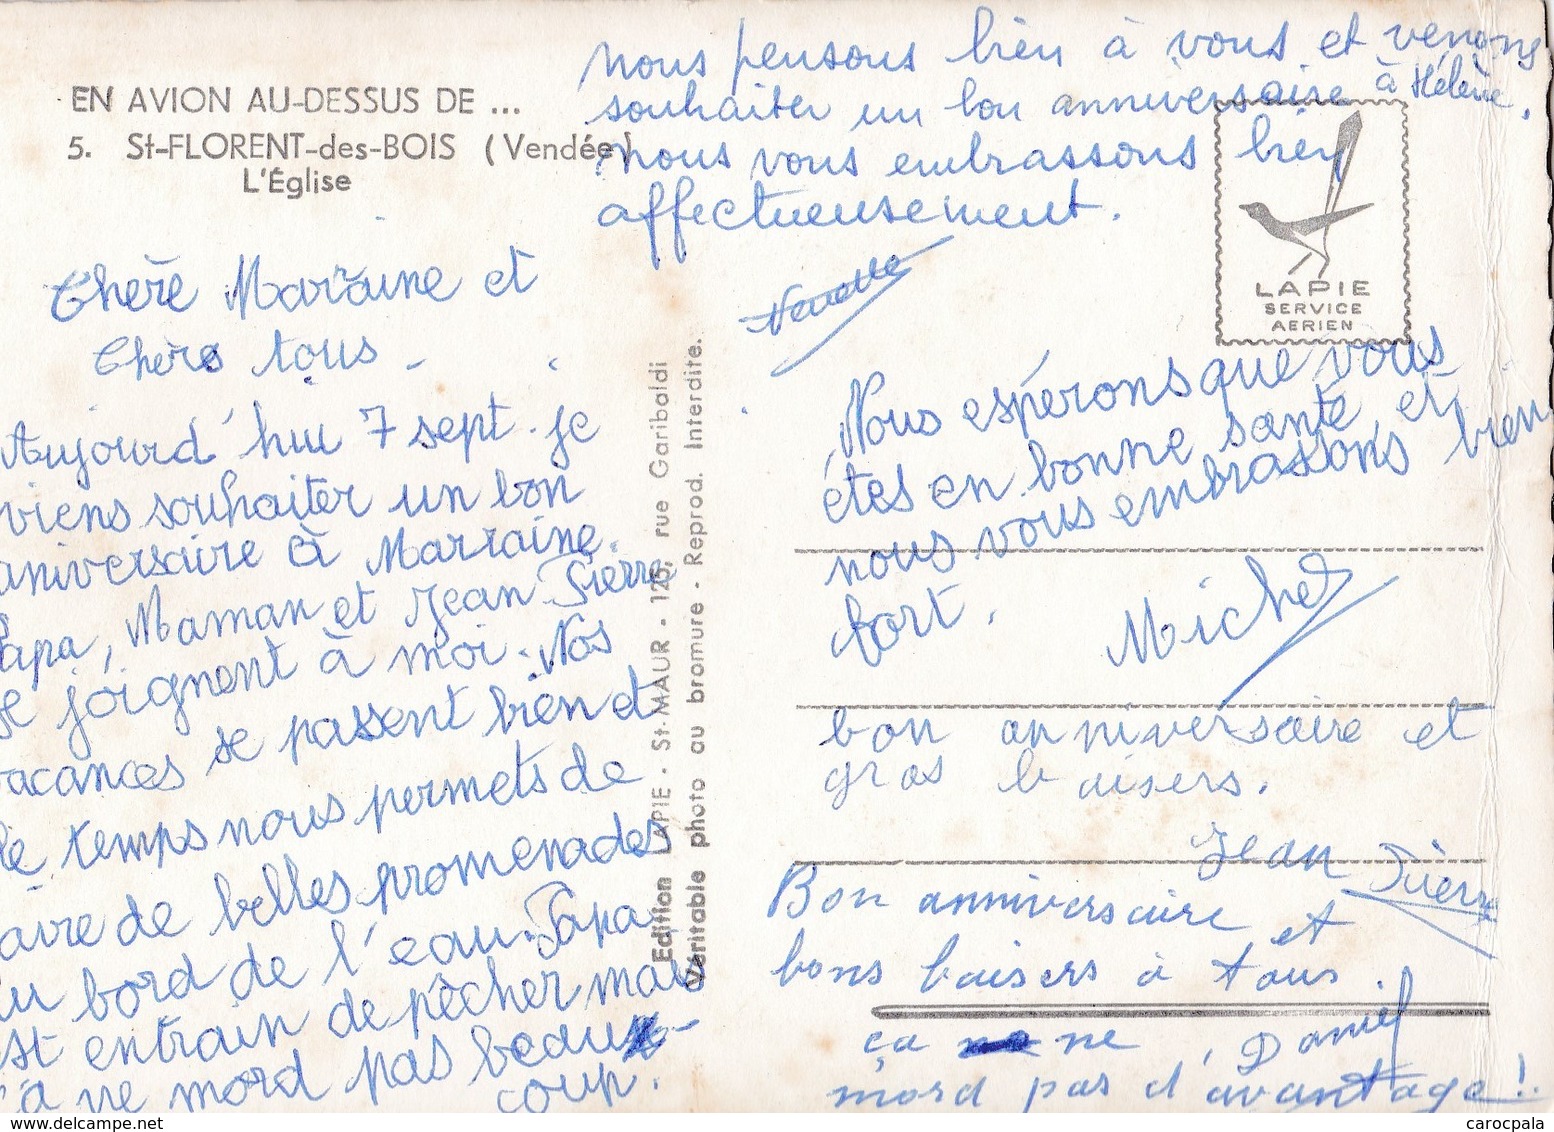 EN AVION AU-DESSUS DE ...
5. St-FLORENT-des-BOIS (Vendée)
L'Église
Chère Maraine et
Chers tous -
Aujourd'hui 7 sept. je
viens souhaiter un bon
anniversaire à Marraine.
Papa, Maman et Jean Pierre
se joignent à moi. Nos
vacances se passent bien et
le temps nous permets de
faire de belles promenades
au bord de l'eau. Papa
est entrain de pêcher mais
ça ne mord pas beau-
coup.
Edition LAPIE - St-MAUR - 125, rue Garibaldi
Véritable photo au bromure - Reprod. Interdite.
nous pensons bien à vous et venons
souhaiter un bon anniversaire à Hélène.
nous vous embrassons bien
affectueusement.
LAPIE
SERVICE
AERIEN
Nous espérons que vous
êtes en bonne santé, et
nous vous embrassons bien
fort.
Michel
bon anniversaire et
gros baisers.
Jean Pierre
Bon anniversaire et
bons baisers à tous.
Daniel
ça ne
mord pas d'avantage!
www.delcampe.net
carocpala